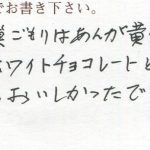 でお書き下さい。
巣ごもりはあんが黄
ホワイトチョコレートと
おいしかったで